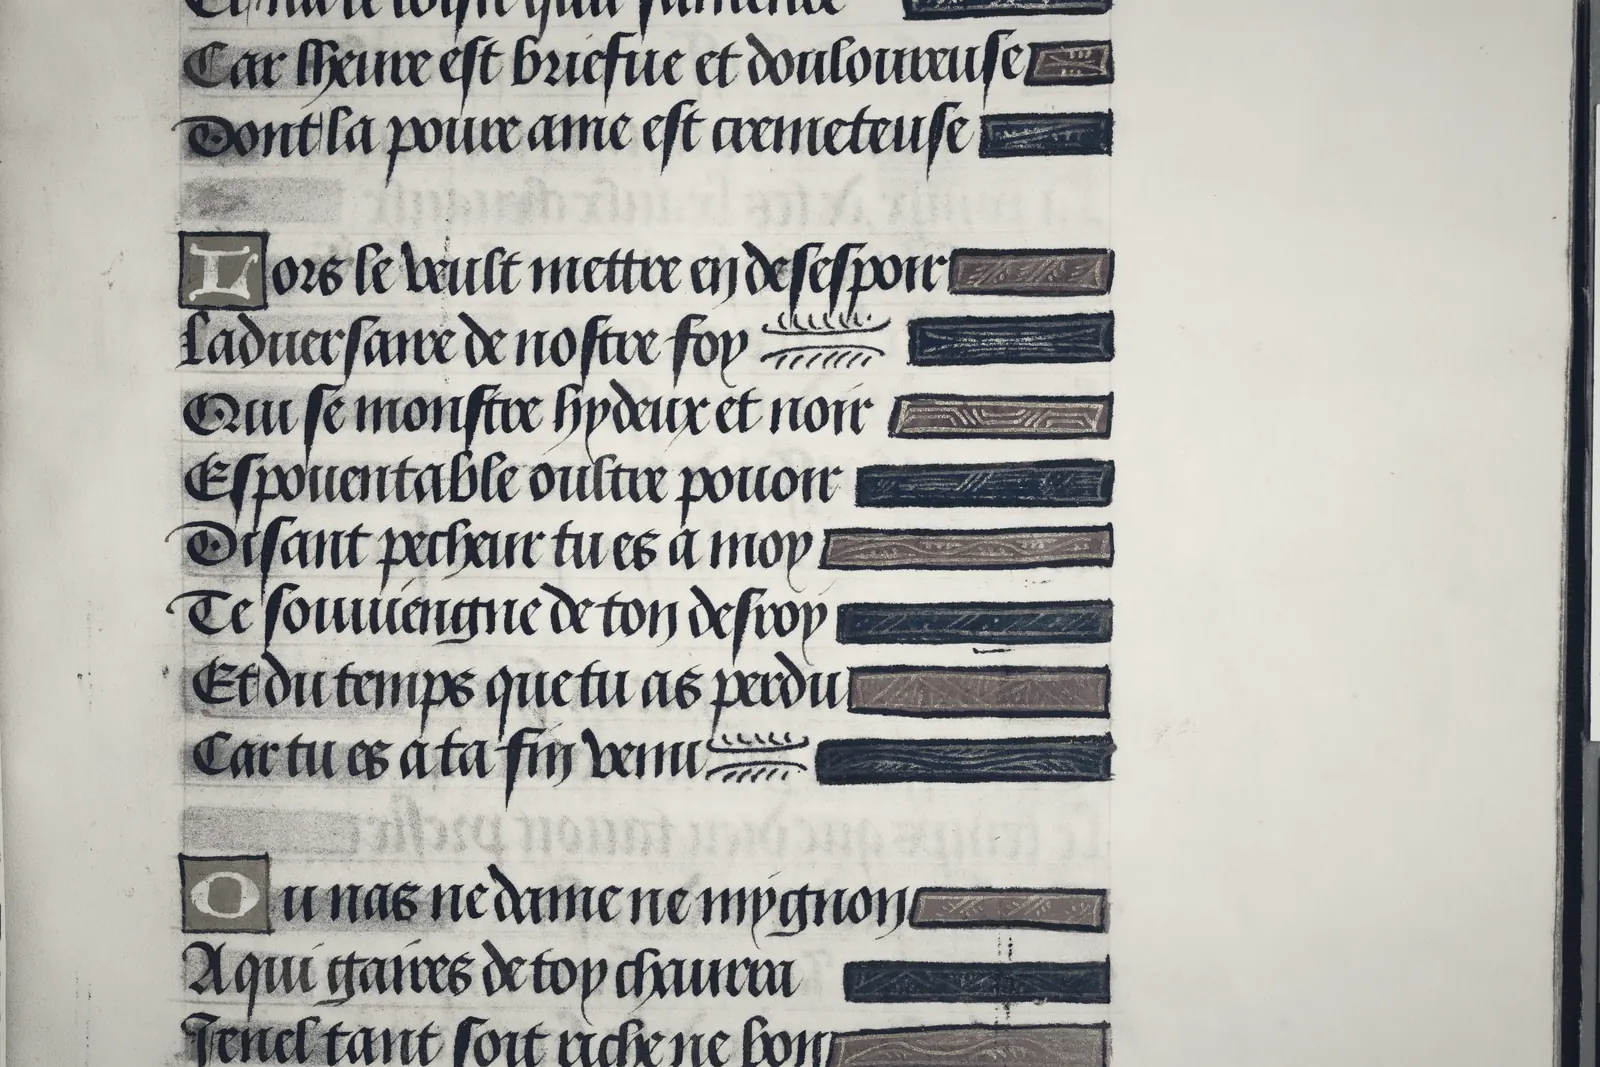 Car lheure est briefue et douloureuse
Dont la poure ame est cremeteuse
Lors le veult mettre en desespoir
Laduersaire de nostre foy
Qui se monstre hydeux et noir
Espouentable oultre pouoir
Disant pecheur tu es a moy
Te souuiengne de ton desroy
Et du temps que tu as perdu
Car tu es a ta fin venu
Ou nas ne dame ne mygnon
A qui gaires de toy chaurra
tant soit riche ne bon